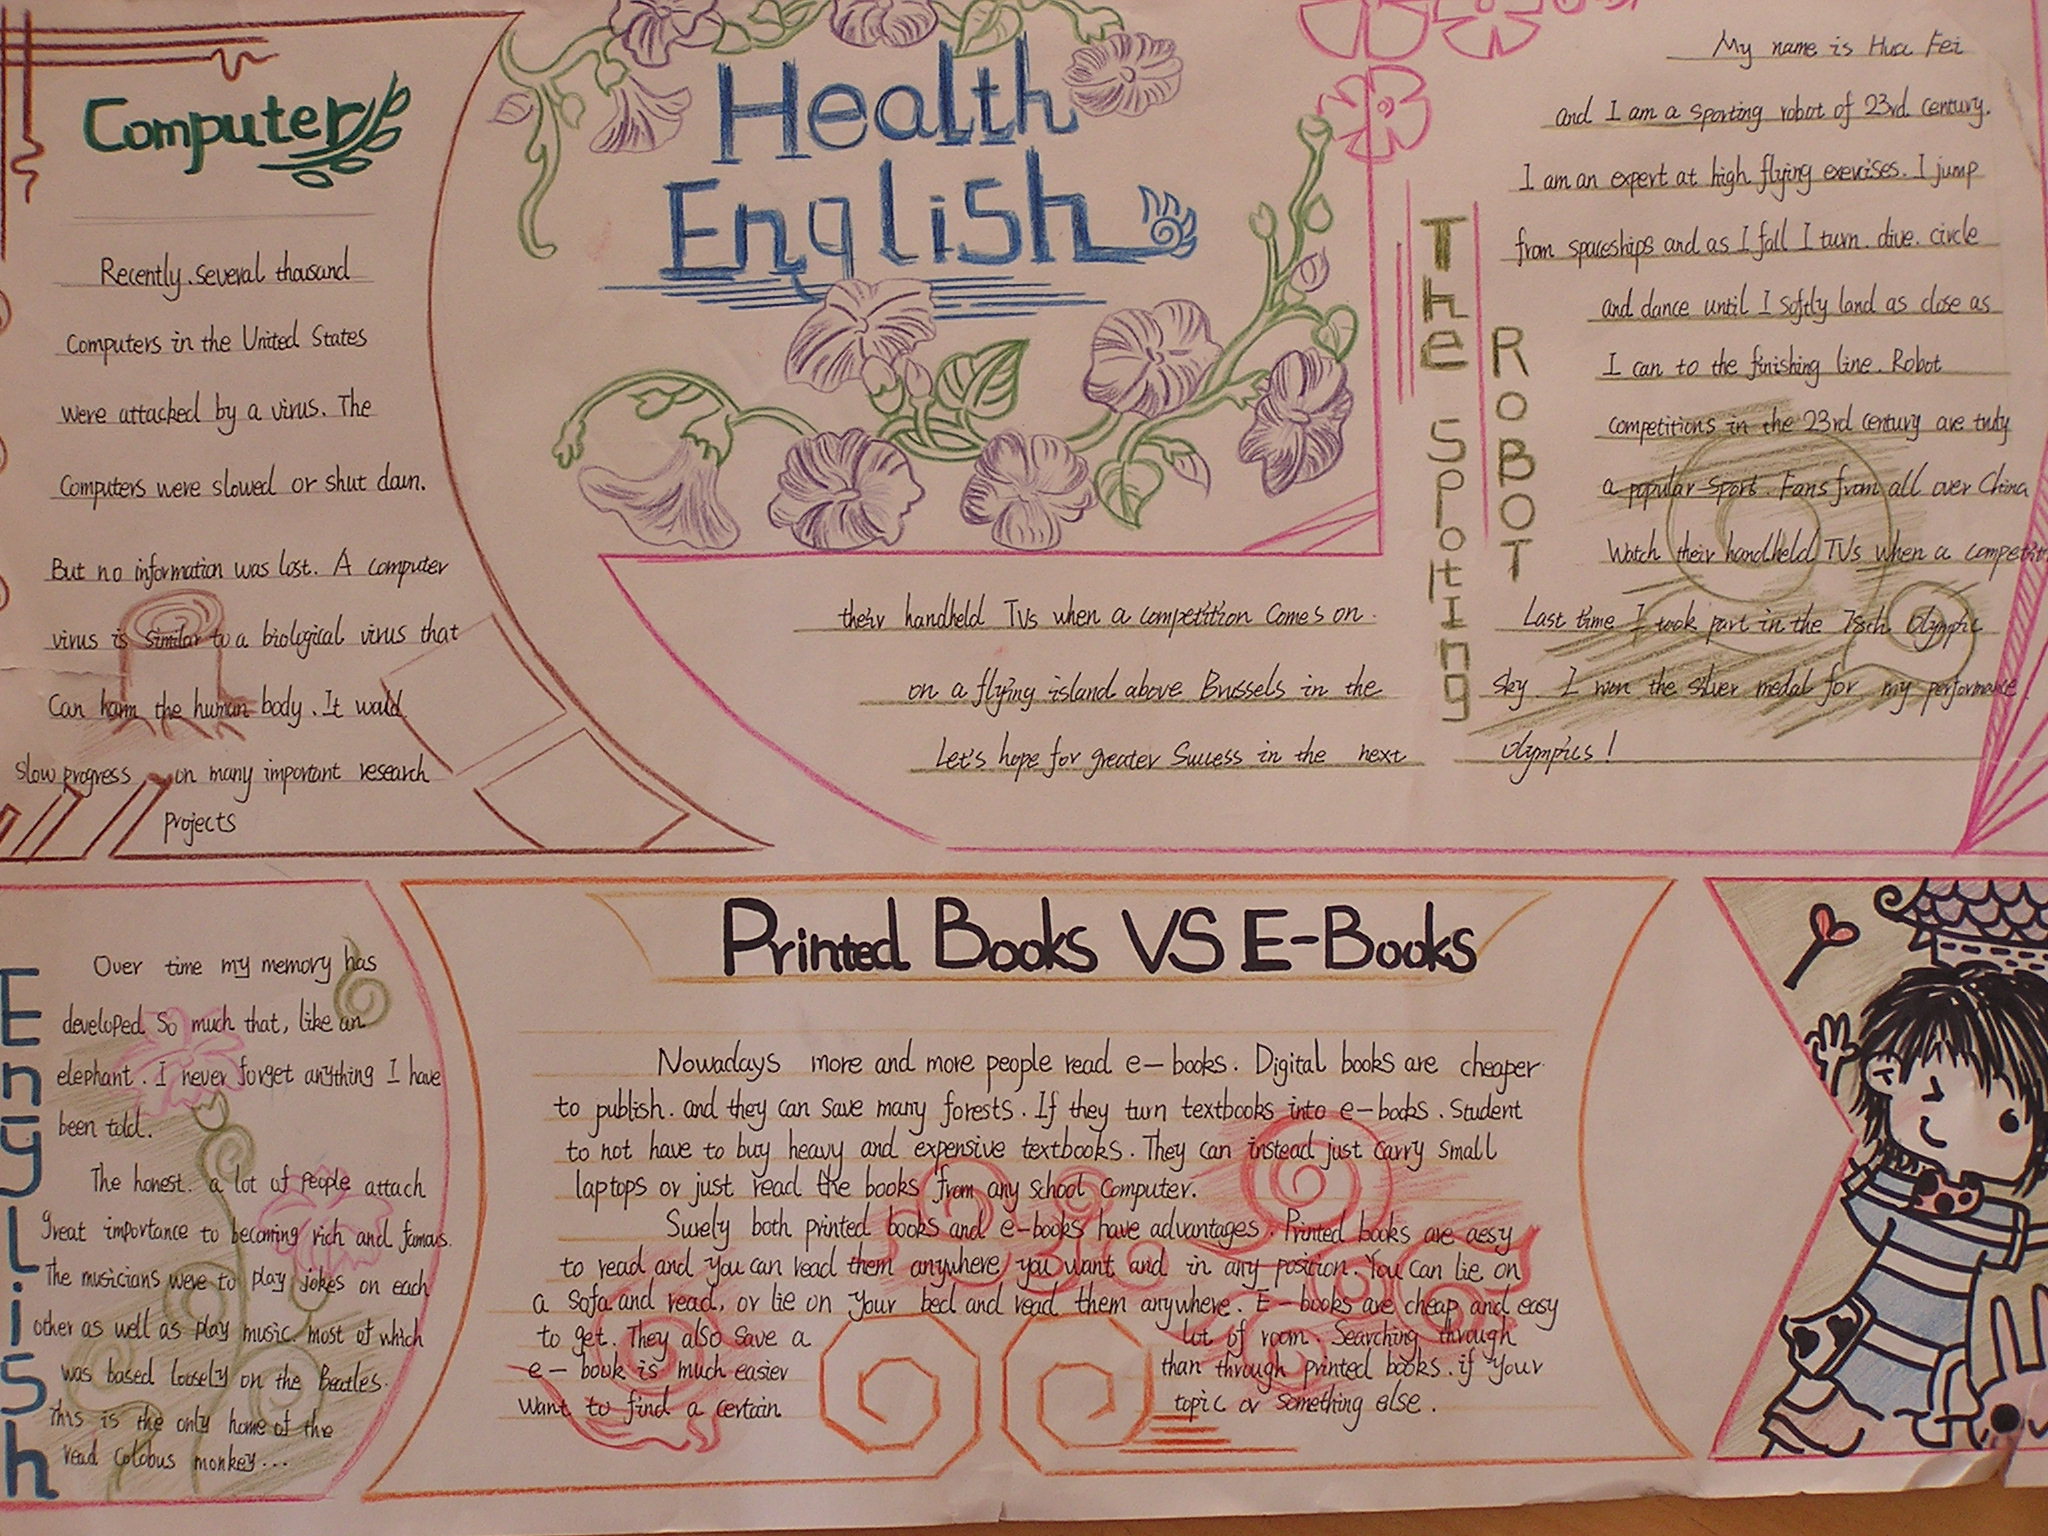 Computer
Recently. several thousand
Computers in the United States
were attacked by a virus. The
Computers were slowed or shut down.
But no information was lost. A computer
virus is similar to a biological virus that
Can harm the human body. It would
slow progress on many important research
projects
Health
English
The Spolting
ROBOT
My name is Hua Fei
and I am a sporting robot of 23rd century.
I am an expert at high flying exercises. I jump
from spaceships and as I fall I turn. dive. circle
and dance until I softly land as close as
I can to the finishing line. Robot
competitions in the 23rd century are truly
a popular sport. Fans from all over China
Watch their handheld TVs when a competiti
their handheld TVs when a competition comes on.
Last time I took part in the Olympic
on a flying island above Brussels in the
sky. I won the silver medal for my performance
Let's hope for greater Success in the next
olympics!
English
Over time my memory has
developed. So much that, like an
elephant. I never forget anything I have
been told.
The honest. a lot of people attach
great importance to becoming rich and famous.
The musicians were to play jokes on each
other as well as play music. most of which
was based loosely on the Beatles.
This is the only home of the
read Colobus monkey...
Printed Books VS E-Books
Nowadays more and more people read e-books. Digital books are cheaper
to publish. and they can save many forests. If they turn textbooks into e-books. Student
to not have to buy heavy and expensive textbooks. They can instead just carry small
laptops or just read the books from any school Computer.
Surely both printed books and e-books have advantages. Printed books are aesy
to read and you can read them anywhere you want and in any position. You can lie on
a sofa and read, or lie on your bed and read them anywhere. E-books are cheap and easy
to get. They also save a lot of room. Searching through
e-book is much easier than through printed books. if your
want to find a certain topic or something else.